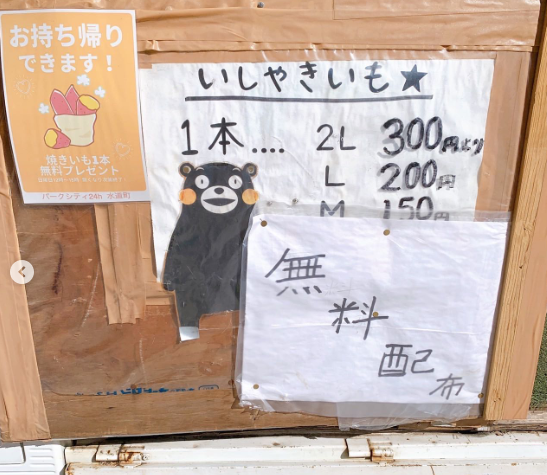 お持ち帰り
できます！
焼きいも1本
無料プレゼント
パークシティ24h 水道町
いしゃきいも★
1本..... 2L 300円より
L 200円
M 150円
無
料
配
布